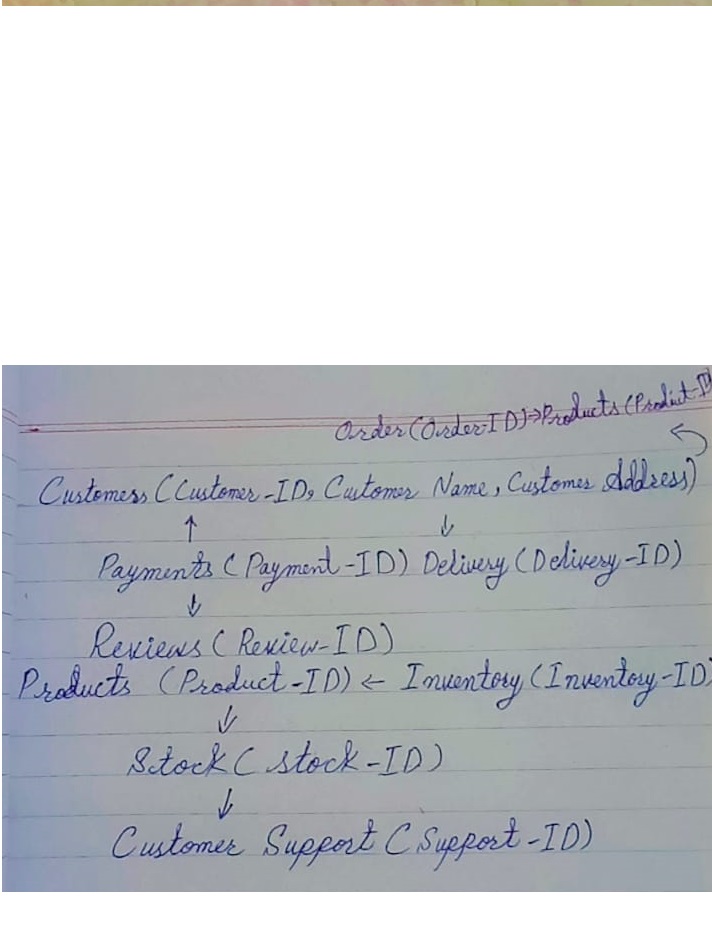 Order(Order-ID)→Products(Product-ID
Customers (Customer-ID, Customer Name, Customer Address)
↑ ↓
Payments (Payment-ID) Delivery (Delivery-ID)
↓
Reviews (Review-ID)
Products (Product-ID) ← Inventory (Inventory-ID)
↓
Stock (stock-ID)
↓
Customer Support (Support-ID)